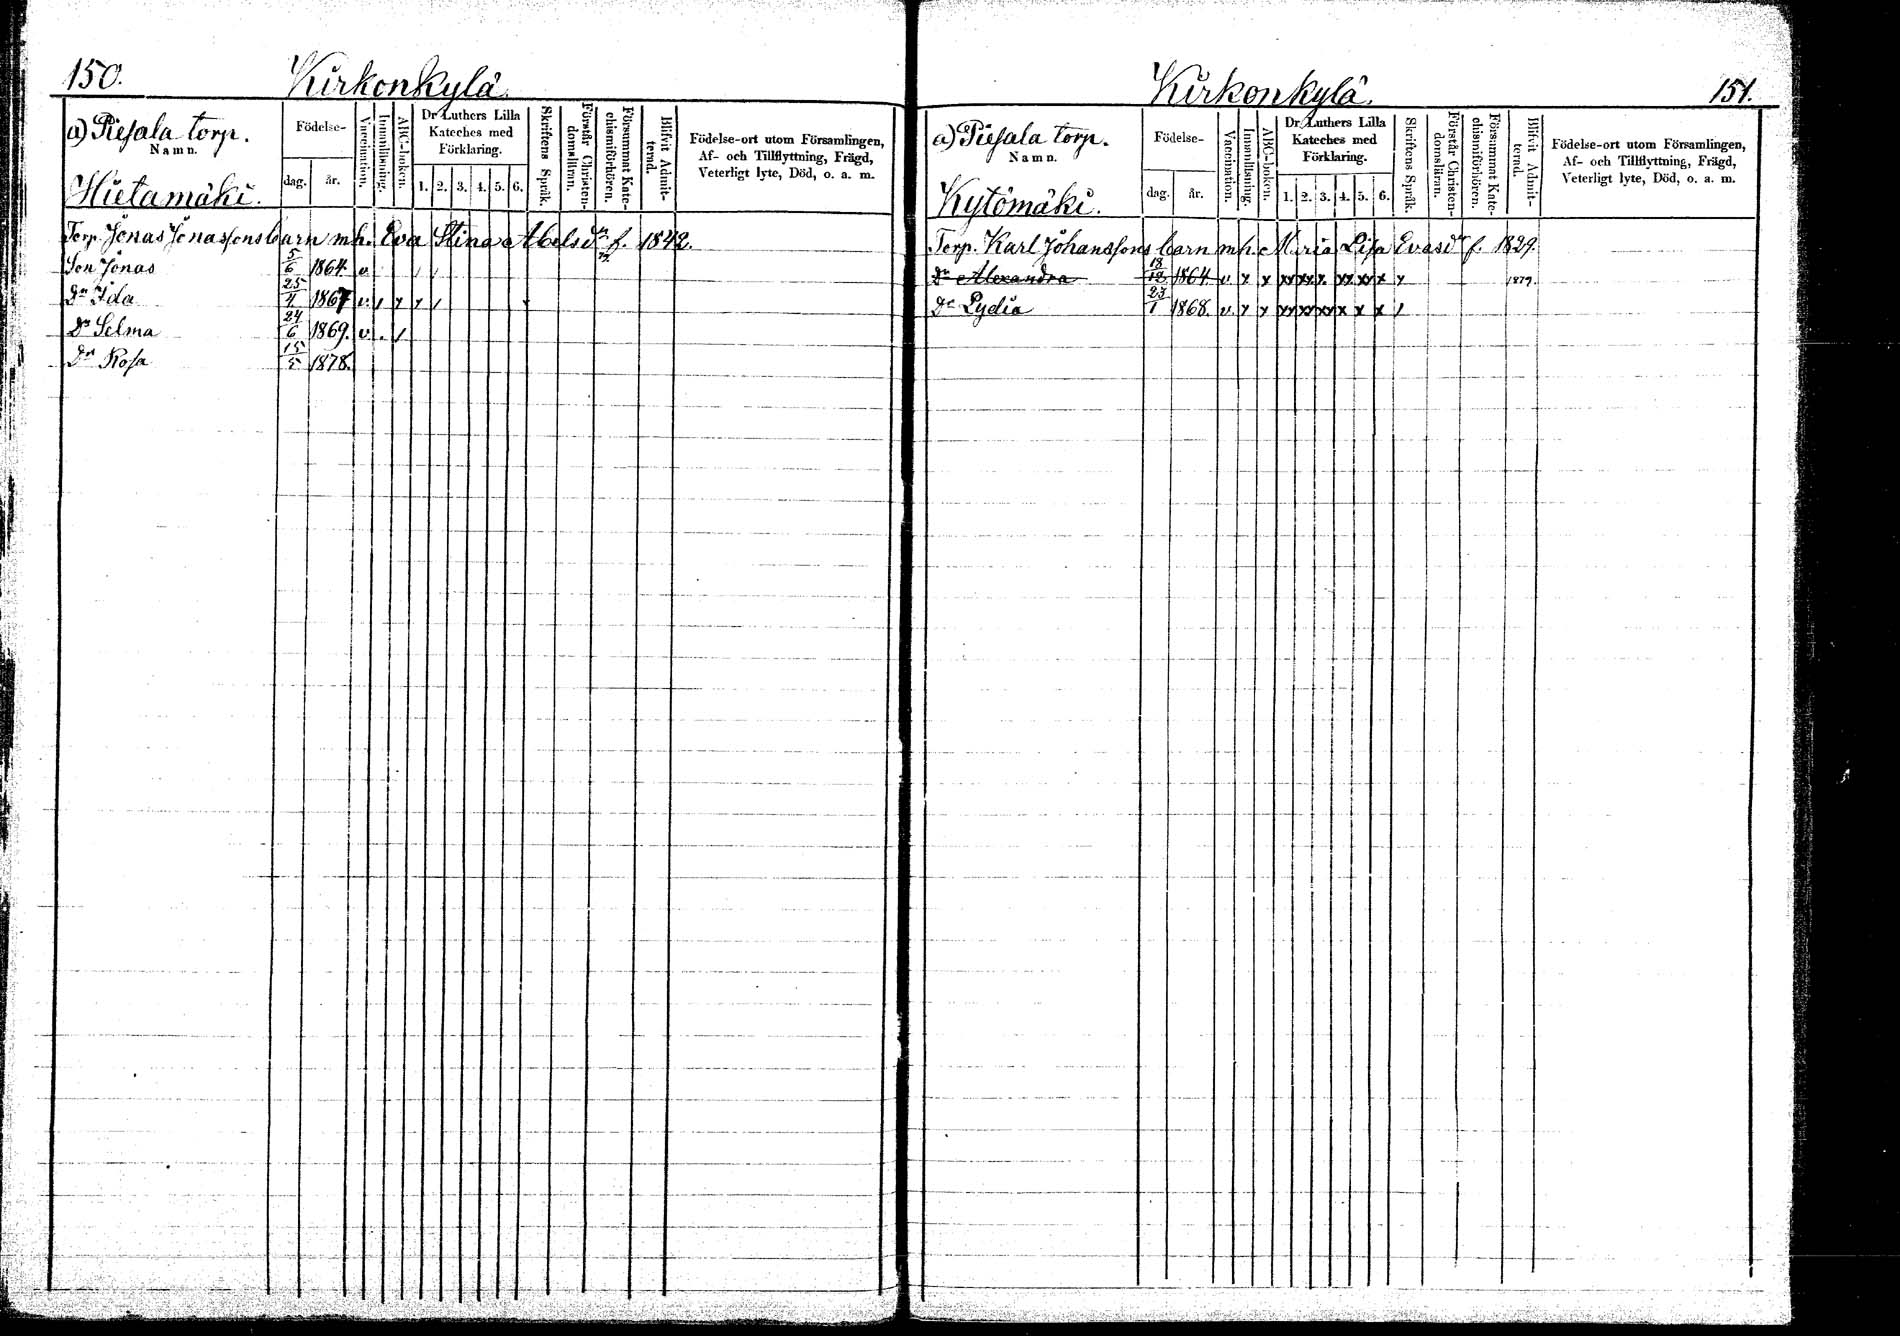 150.
Kirkonkylä.
a) Piesala torp.
Namn.
Hietamäki.
Födelse-
dag.
år.
Vaccination.
Innanläsning.
ABC-boken.
Dr Luthers Lilla
Kateches med
Förklaring.
1. 2. 3. 4. 5. 6.
Skriftens Språk.
Förstår Christen-
domsläran.
Försummat Kate-
chismiförhören.
Blifvit Admit-
terad.
Födelse-ort utom Församlingen,
Af- och Tillflyttning, Frägd,
Veterligt lyte, Död, o. a. m.
Torp. Jonas Jonassons barn m.h. Eva Stina Abelsdr f. 1842.
Son Jonas 5/6 1864. v.
Dr Ida 25/4 1867 v.
Dr Selma 24/6 1869. v.
Dr Rosa 15/5 1878.
Kirkonkylä.
151.
a) Piesala torp.
Namn.
Kytömäki.
Födelse-
dag.
år.
Vaccination.
Innanläsning.
ABC-boken.
Dr Luthers Lilla
Kateches med
Förklaring.
1. 2. 3. 4. 5. 6.
Skriftens Språk.
Förstår Christen-
domsläran.
Försummat Kate-
chismiförhören.
Blifvit Admit-
terad.
Födelse-ort utom Församlingen,
Af- och Tillflyttning, Frägd,
Veterligt lyte, Död, o. a. m.
Torp. Karl Johanssons barn m.h. Maria Lisa Evasdr f. 1829.
Dr Alexandra 18/12 1864. v. x x xx xx x. xx xx x x 1879.
Dr Lydia 23/1 1868. v. x x xx xx xx x x x /